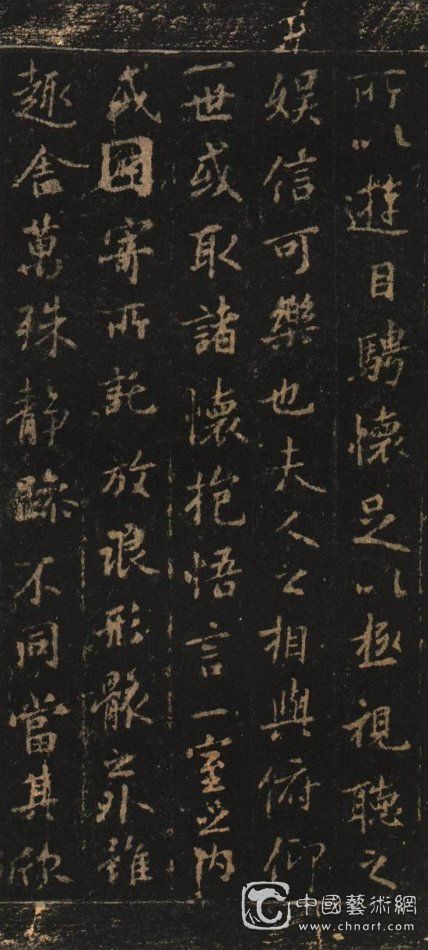 所以遊目騁懷足以極視聽之
娛信可樂也夫人之相與俯仰
一世或取諸懷抱悟言一室之內
或因寄所託放浪形骸之外雖
趣舍萬殊靜躁不同當其欣
中國藝術網
www.chnart.com